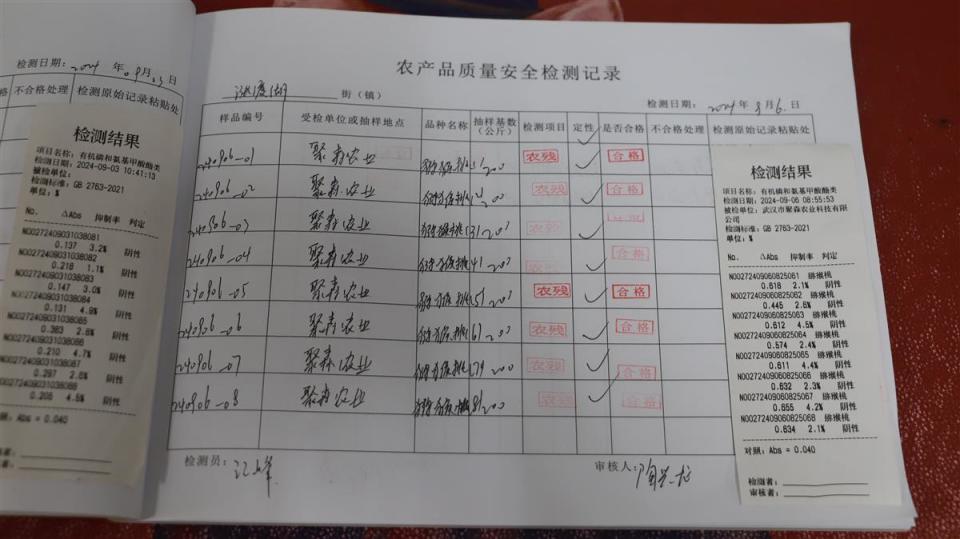 检测日期：2024年09月23日
不合格处理 检测原始记录粘贴处
检测结果
项目名称：有机磷和氨基甲酸酯类
检测日期：2024-09-03 10:41:13
被检单位：
检测标准：GB 2763-2021
单位：%
No. △Abs 抑制率 判定
N00272409031038081
0.137 3.2% 阴性
N00272409031038082
0.218 1.1% 阴性
N00272409031038083
0.147 3.0% 阴性
N00272409031038084
0.131 4.9% 阴性
N00272409031038085
0.383 2.8% 阴性
N00272409031038086
0.210 4.7% 阴性
N00272409031038087
0.297 2.8% 阴性
N00272409031038088
0.205 4.5% 阴性
对照：Abs = 0.040
农产品质量安全检测记录
街（镇）
检测日期：2024年9月6日
样品编号 受检单位或抽样地点 品种名称 抽样基数（公斤） 检测项目 定性 是否合格 不合格处理 检测原始记录粘贴处
240906-01 聚森农业 200 农残 ✓ 合格
240906-02 聚森农业 农残 ✓ 合格
240906-03 聚森农业 200 农残 ✓ 合格
240906-04 聚森农业 200 农残 ✓ 合格
240906-05 聚森农业 200 农残 ✓ 合格
240906-06 聚森农业 200 农残 ✓ 合格
240906-07 聚森农业 200 农残 ✓ 合格
240906-08 聚森农业 200 农残 ✓ 合格
检测员：
审核人：
检测结果
项目名称：有机磷和氨基甲酸酯类
检测日期：2024-09-06 08:55:53
被检单位：武汉市聚森农业科技有限
公司
检测标准：GB 2763-2021
单位：%
No. △Abs 抑制率 判定
N00272409060825061 猕猴桃
0.618 2.1% 阴性
N00272409060825062 猕猴桃
0.445 2.6% 阴性
N00272409060825063 猕猴桃
0.612 4.5% 阴性
N00272409060825064 猕猴桃
0.574 2.4% 阴性
N00272409060825065 猕猴桃
0.611 4.4% 阴性
N00272409060825066 猕猴桃
0.632 2.3% 阴性
N00272409060825067 猕猴桃
0.655 4.2% 阴性
N00272409060825068 猕猴桃
0.634 2.1% 阴性
对照：Abs = 0.040
检测者：
审核者：